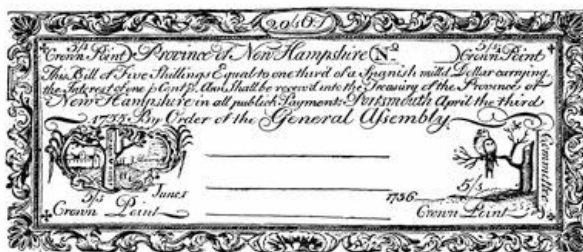 20/6D
5/s Crown Point Province of New Hampshire No 5/s Crown Point
This Bill of Five Shillings Equal to one third of a Spanish mill'd Dollar carrying
the Interest of one p Cent p Ann Shall be receivd into the Treasury of the Province of
New Hampshire in all publick Payments Portsmouth April the third
1755 By Order of the General Assembly
Committee
5/s June 1 1756 5/s
Crown Point Crown Point